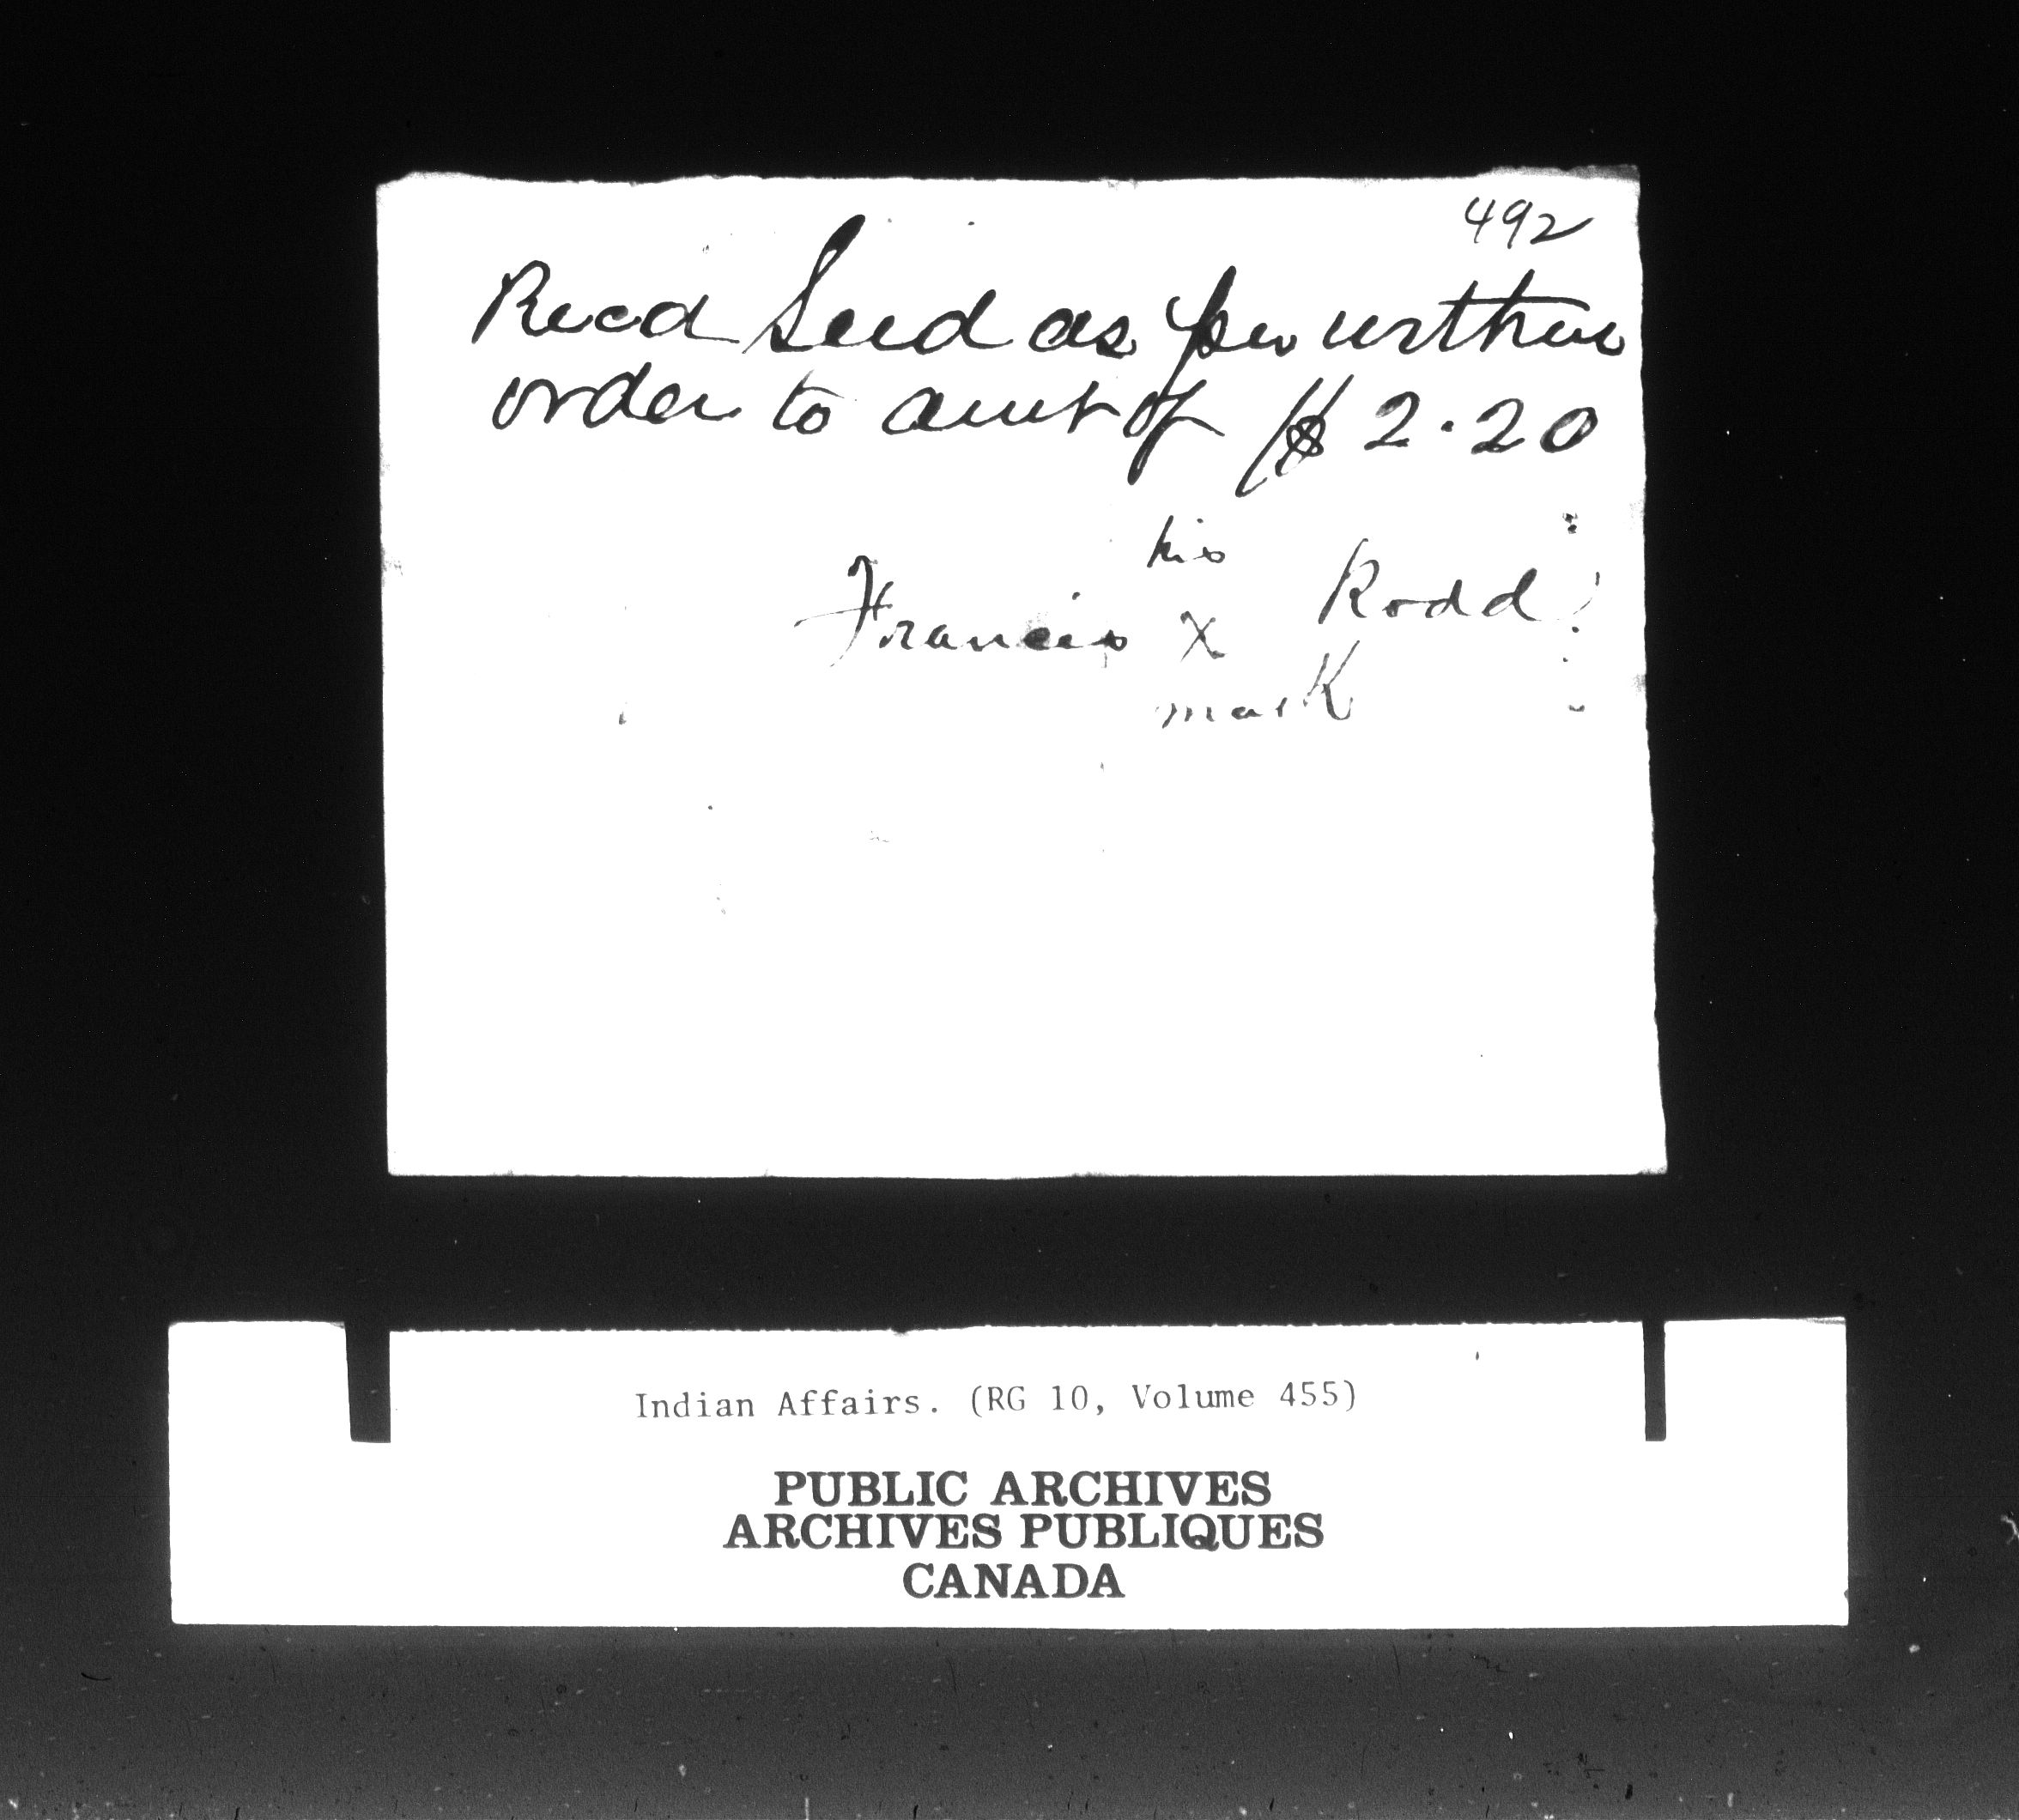 492
Recd Seed as per within
order to amt of $ 2.20
his
Francis X Rodd
mark
Indian Affairs. (RG 10, Volume 455)
PUBLIC ARCHIVES
ARCHIVES PUBLIQUES
CANADA